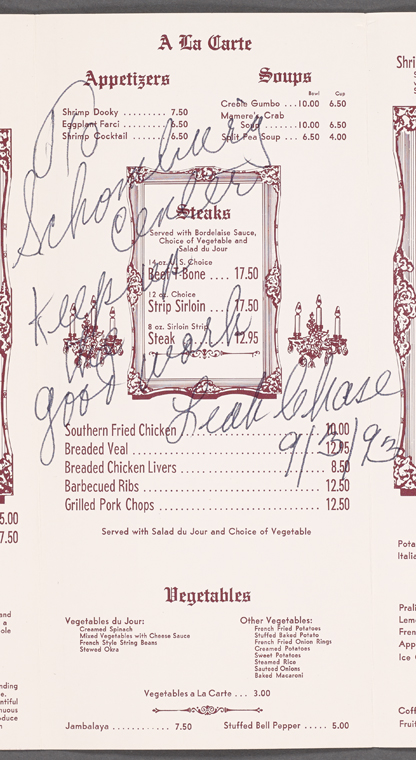 A La Carte
Appetizers
Shrimp Dooky ........ 7.50
Eggplant Farci ........ 6.50
Shrimp Cocktail ....... 6.50
Soups
Bowl Cup
Creole Gumbo ...10.00 6.50
Mamere's Crab
Soup ......10.00 6.50
Split Pea Soup ... 6.50 4.00
To
Schomburg
Center
Keep up
the
good work
Leah Chase
9/3/93
Steaks
Served with Bordelaise Sauce,
Choice of Vegetable and
Salad du Jour
14 oz. U.S. Choice
Beef T-Bone .... 17.50
12 oz. Choice
Strip Sirloin .... 17.50
8 oz. Sirloin Strip
Steak ........ 12.95
Southern Fried Chicken ........ 10.00
Breaded Veal ........ 12.95
Breaded Chicken Livers ........ 8.50
Barbecued Ribs ........ 12.50
Grilled Pork Chops ........ 12.50
Served with Salad du Jour and Choice of Vegetable
Vegetables
Vegetables du Jour:
Creamed Spinach
Mixed Vegetables with Cheese Sauce
French Style String Beans
Stewed Okra
Other Vegetables:
French Fried Potatoes
Stuffed Baked Potato
French Fried Onion Rings
Creamed Potatoes
Sweet Potatoes
Steamed Rice
Sauteed Onions
Baked Macaroni
Vegetables a La Carte ... 3.00
Jambalaya ............ 7.50
Stuffed Bell Pepper ..... 5.00
5.00
7.50